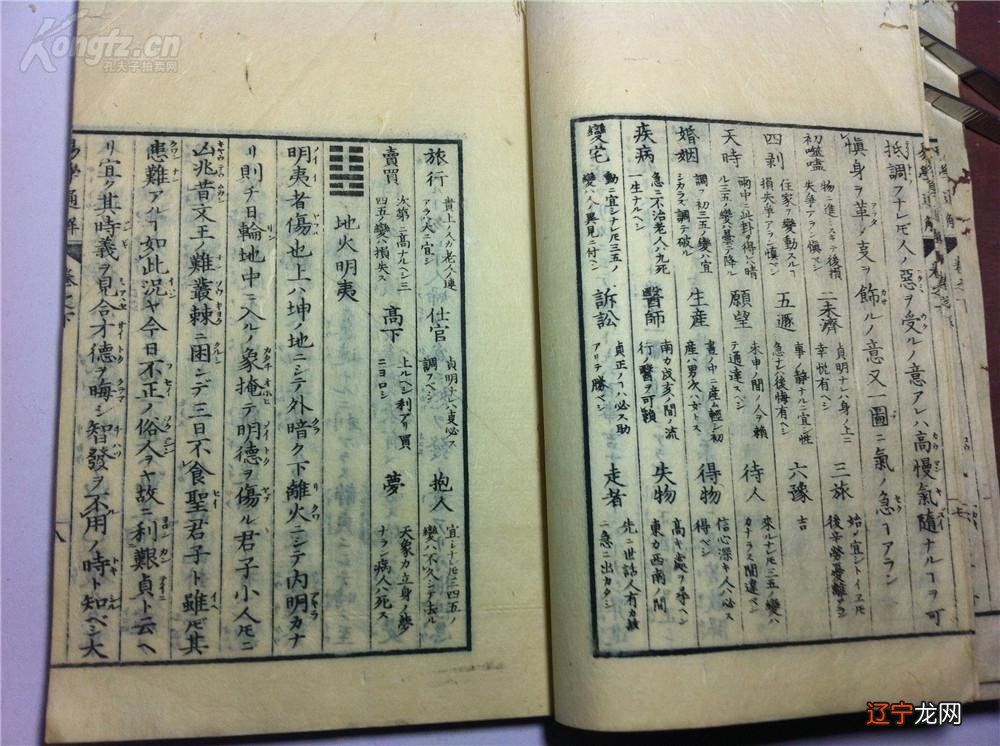 抵調フナレ𪜈人ノ惡ヲ受ルノ意アレハ高慢氣隨ナルヿヲ可
愼身ヲ革ノ㕝ヲ飾ルノ意又一圖ニ氣ノ急ヿアラン
初噬嗑 物ニ進ミスキテ後損失爭アラン愼ベシ 二未濟 貞明ナレハ身ノ上ニ幸悦有ベシ 三旅 始ノ宜シトイヱ𪜈後辛勞憂離アラン
四剥 住家ヲ變動スルヿ損失爭アラン愼ベシ 五遯 事ノ靜ナルニ宜シ性急ナレハ後悔有ベシ 六豫 吉
天時 雨中ニ此卦ヲ得レハ晴ル三五ノ變ハ曇テ降ル 願望 未申ノ間ノ人ヲ賴テ通達スベシ 待人 來ルナレ𪜈三五ノ變ハカナラス間違ベシ
婚姻 調フ初三五ノ變ハ宜シカラズ調テ破ル 生産 晝ノ中ニ産ム輕シ初産ハ男次ハ女トス 得物 信心深キ人ハ必ス得ベシ
疾病 急ニ不治老人ハ九死一生ナルヘシ 醫師 南カ戌亥ノ間ノ流行ノ醫ヲ可賴 失物 高キ處ヲ尋ベシ東カ西南ノ間
變宅 動ニ宜シナレ𪜈三五ノ變ハ人ノ異見ニ付ヘシ 訴訟 貞正ノヿハ必ス助アリテ勝ベシ 走者 先ニ世話人有カ故ニ急ニ出カタシ
旅行 貴上ノ人カ老人ノ連アラハ大ニ宜シ 仕官 貞明ナレハ㕝必ス調フベシ 抱人 宜シナレ𪜈三四五ノ變ハ不久シテ去ル
賣買 次第ニ高ナルヘシ三四五ノ變ハ損失ス 高下 上ルヘシ利アリ買ニヨロシ 夢 天象カ立身ノ夢ナラン病人ハ死ス
䷣ 地火明夷
明夷者傷也上ハ坤ノ地ニシテ外暗ク下離火ニシテ内明カナ
リ則チ日輪地中ニ入ルノ象掩テ明德ヲ傷ル君子小人𪜈ニ
凶兆昔文王ノ難叢棘ニ困ンデ三日不食聖君子ト雖𪜈其
患難アルヿ如此況ヤ今日不正ノ俗人ヲヤ故ニ利艱貞ト云ヘ
リ宜ク其時義ヲ見合才德ヲ晦シ智發ヲ不用ノ時ト知ベシ大
易學通解 卷之下 八
Kongfz.cn
孔夫子拍卖网
辽宁龙网